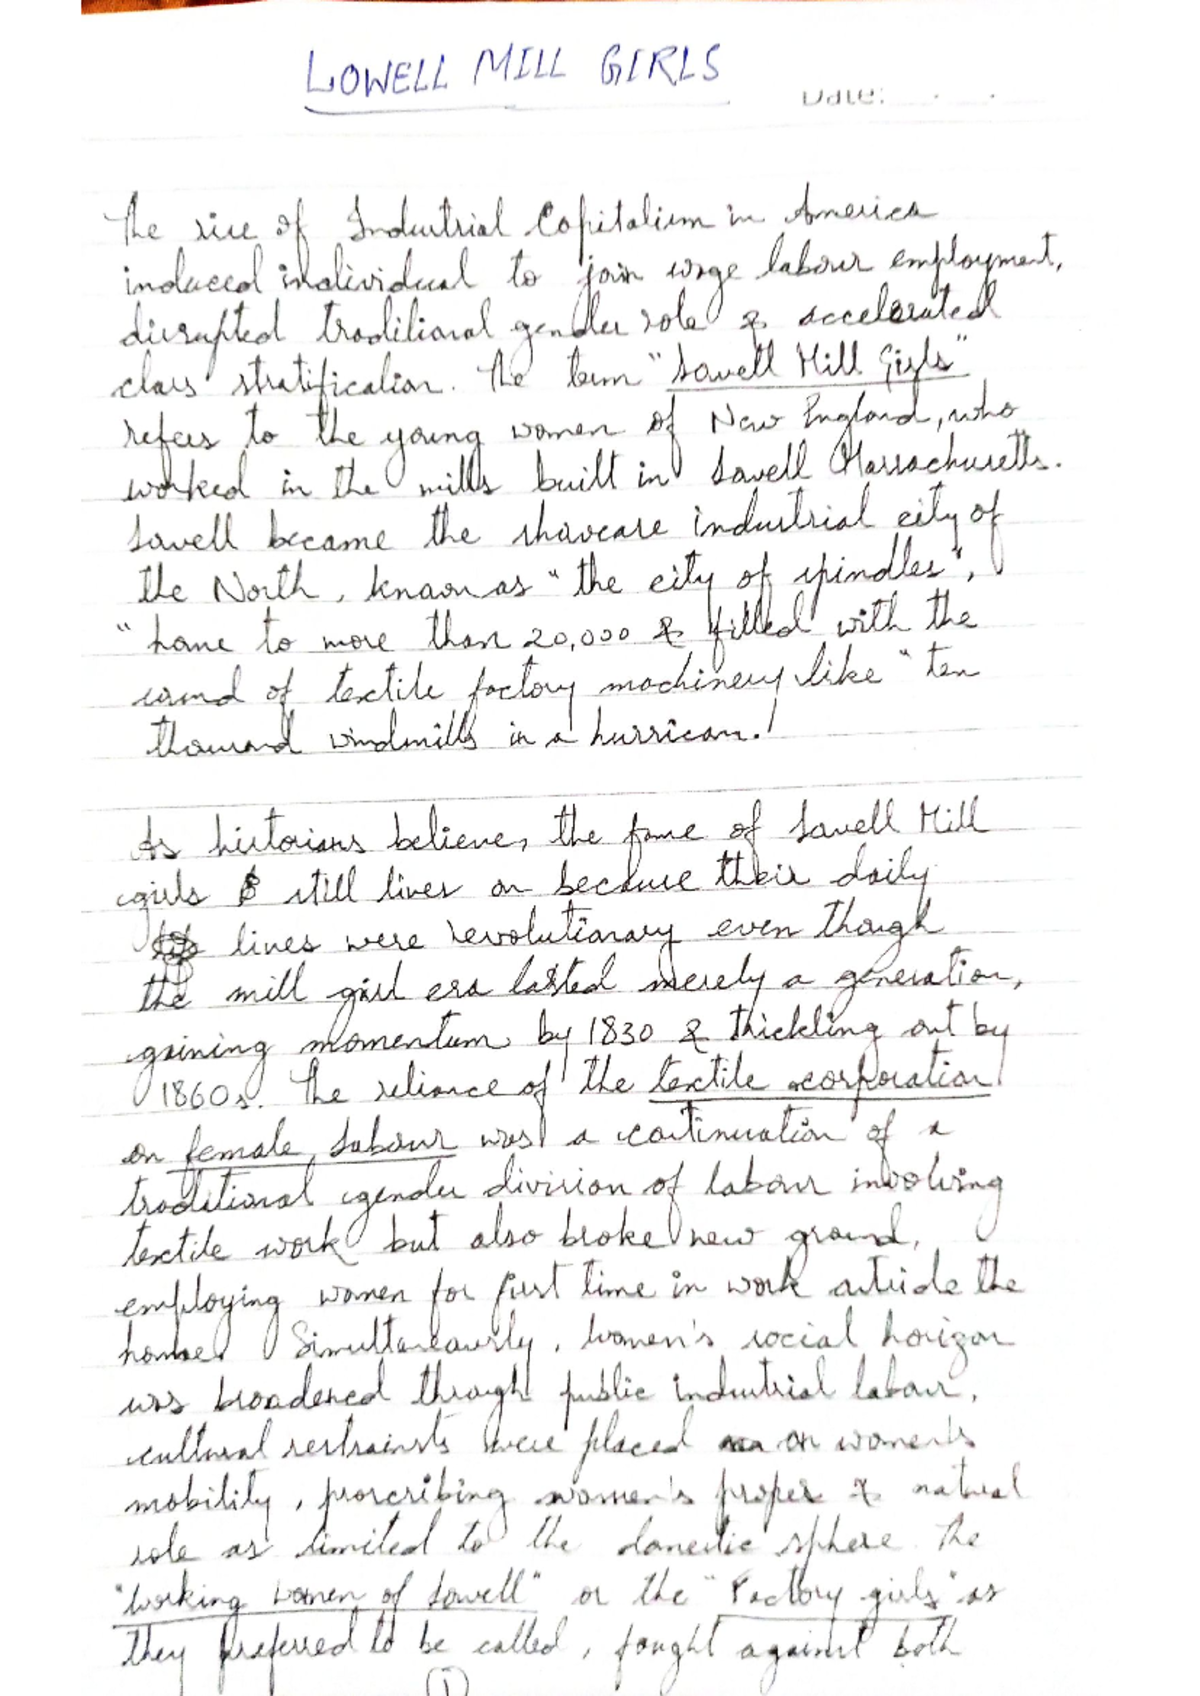 LOWELL MILL GIRLS
Date:
The rise of Industrial Capitalism in America
induced individual to join wage labour employment,
disrupted traditional gender role & accelerated
class stratification. The term "Lowell Mill Girls"
refers to the young women of New England, who
worked in the mills built in Lowell Massachusetts.
Lowell became the showcase industrial city of
the North, known as "the city of spindles",
"home to more than 20,000 & filled with the
sound of textile factory machinery like "ten
thousand windmills in a hurrican."
As historians believe, the fame of Lowell Mill
girls still lives on because their daily
lives were revolutionary even though
the mill girl era lasted merely a generation,
gaining momentum by 1830 & thickling out by
1860s. The reliance of the textile corporation
on female labour was a continuation of a
traditional gender division of labour involving
textile work but also broke new ground,
employing women for first time in work outside the
home. Simultaneously, women's social horizon
was broadened through public industrial labour,
cultural restraints were placed on women's
mobility, proscribing women's proper & natural
role as limited to the domestic sphere. The
"working women of Lowell" or the "Factory girls" as
they preferred to be called, fought against both
1